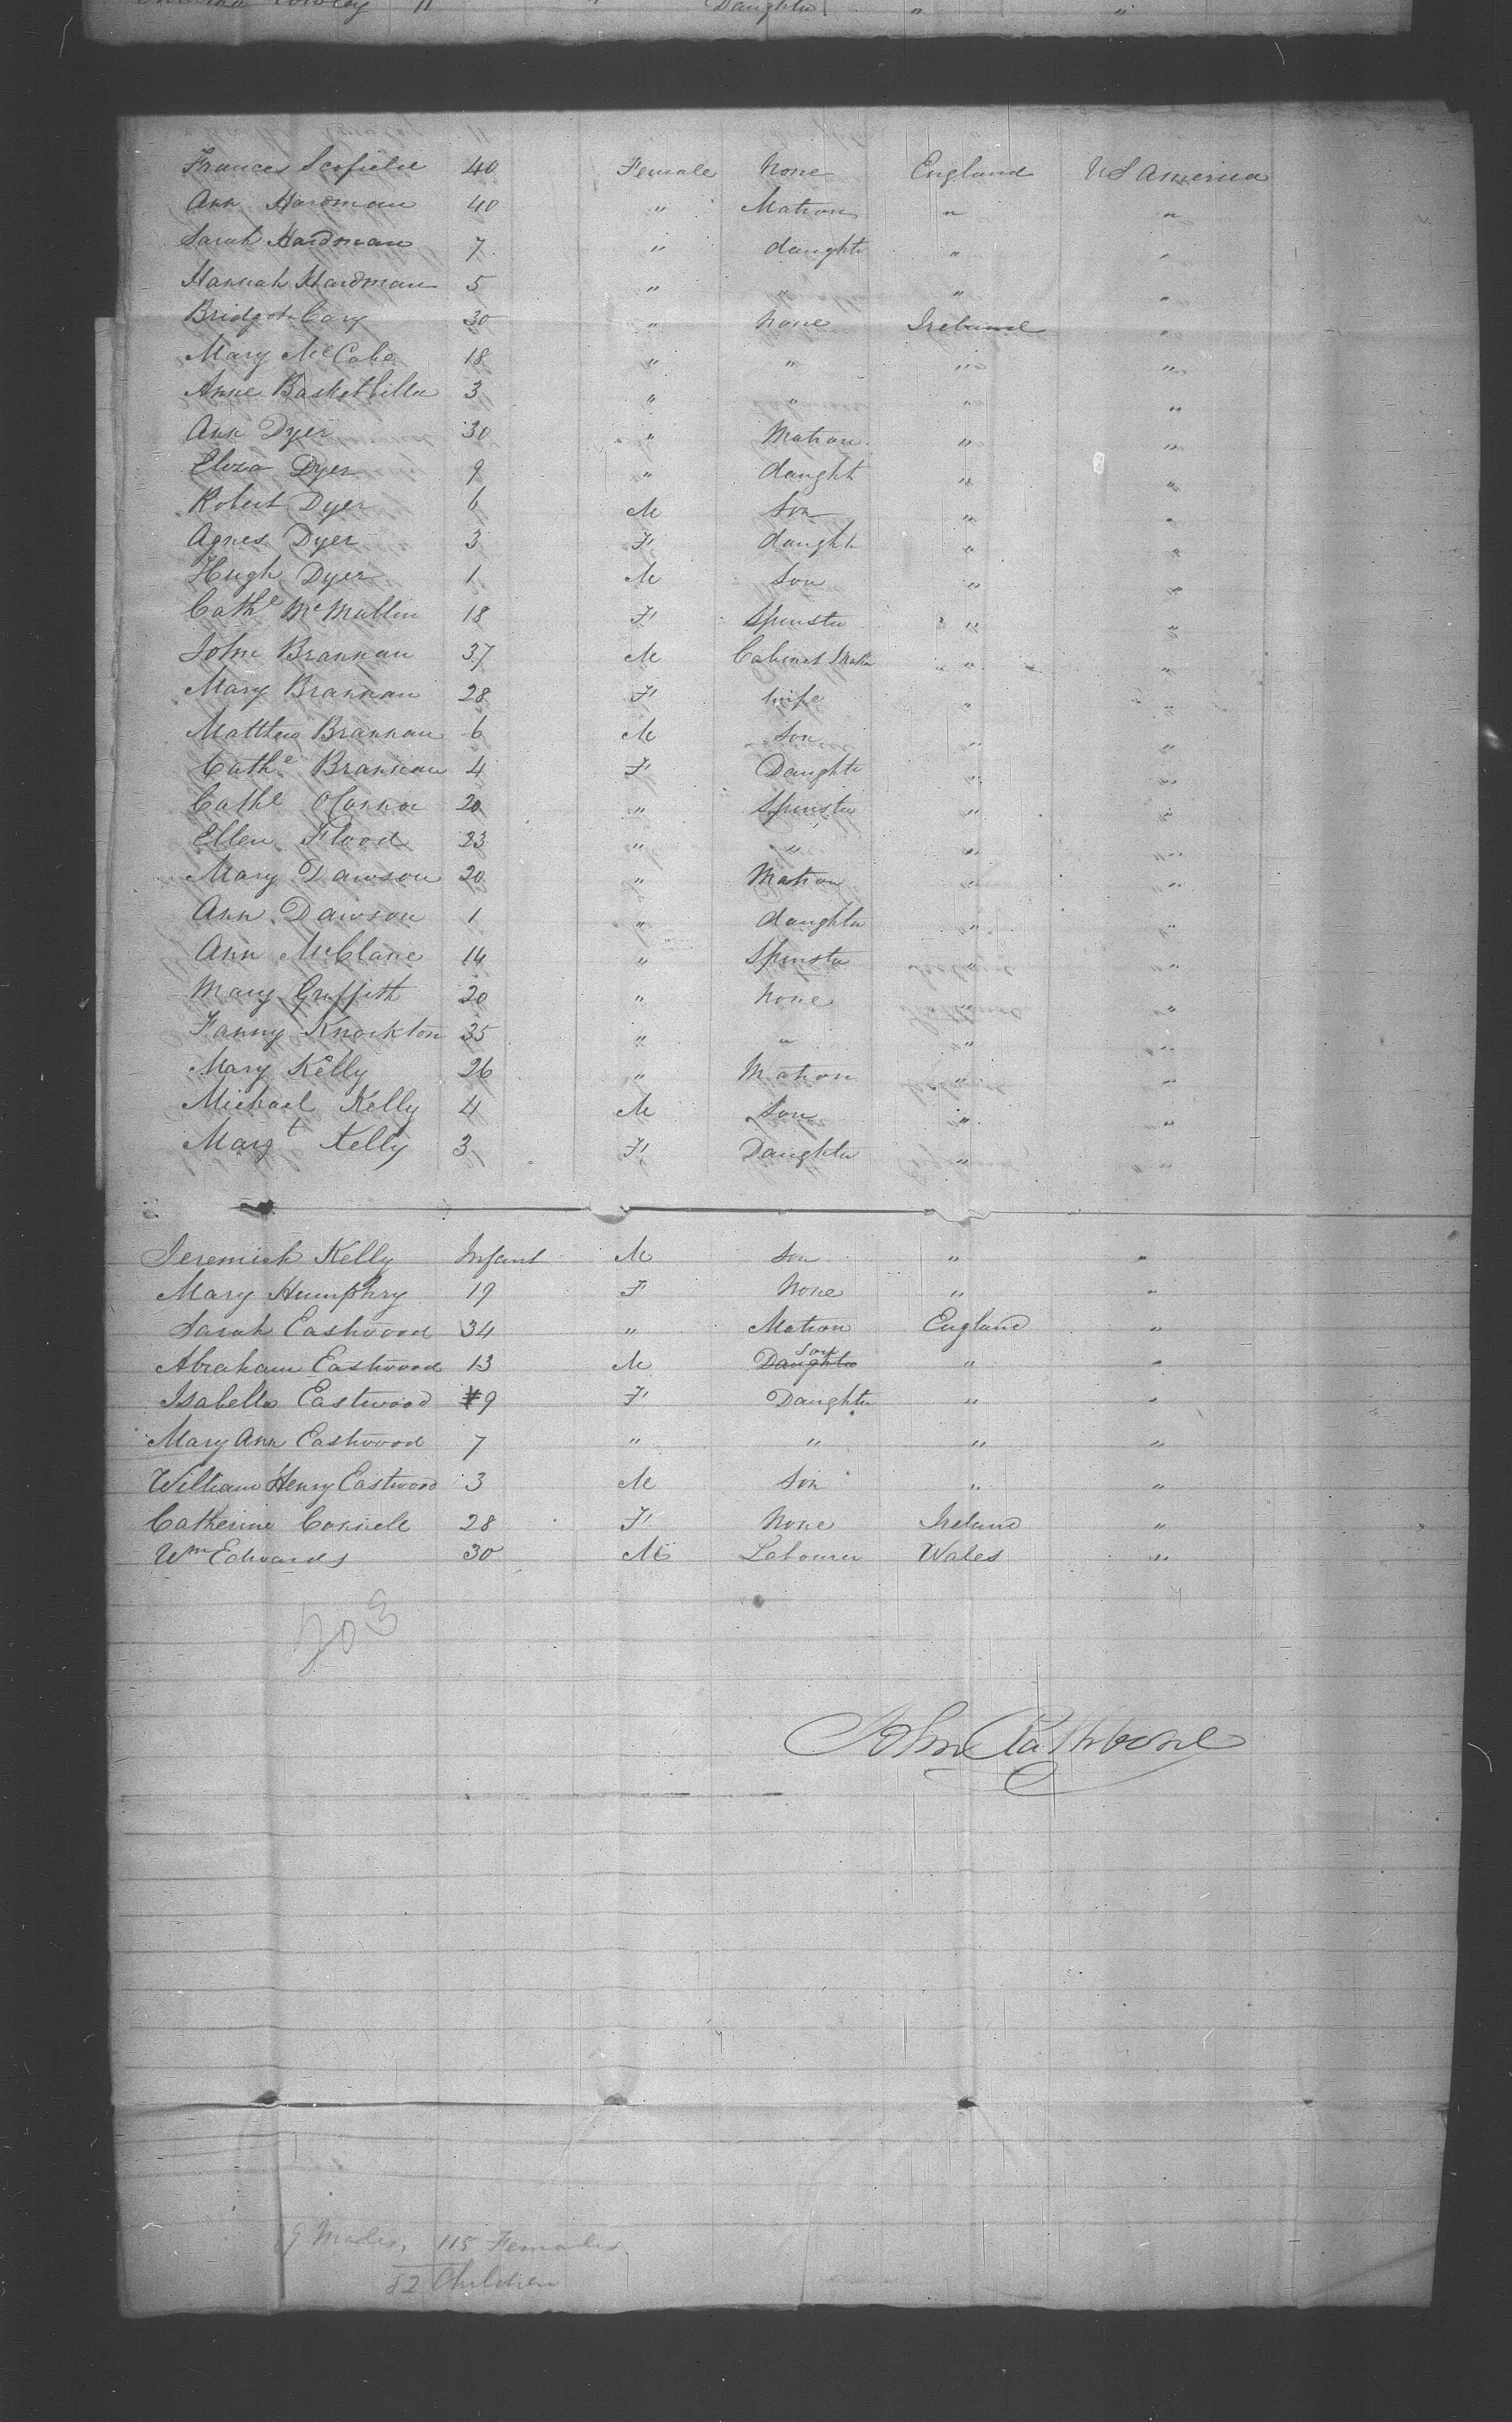 Cowley 11 " Daughter " "
Frances Scofield 40 Female None England US America
Ann Hardman 40 " Matron " "
Sarah Hardman 7 " daughtr " "
Hannah Hardman 5 " " " "
Bridget Cary 30 " None Ireland "
Mary McCabe 18 " " " "
Anne Basketbille 3 " " " "
Ann Dyer 30 " Matron " "
Eliza Dyer 9 " daught " "
Robert Dyer 6 M Son " "
Agnes Dyer 3 F daught " "
Hugh Dyer 1 M Son " "
Cathe McMullin 18 F Spinster " "
John Brannan 37 M Cabinet Maker " "
Mary Brannan 28 F Wife " "
Matthew Brannan 6 M Son " "
Cathe Brannan 4 F Daughtr " "
Cathe OConnor 20 " Spinster " "
Ellen Flood 23 " " " "
Mary Dawson 20 " Matron " "
Ann Dawson 1 " daughter " "
Ann McClane 14 " Spinster " "
Mary Griffith 20 " None " "
Fanny Knockton 35 " " " "
Mary Kelly 26 " Matron " "
Michael Kelly 4 M Son " "
Margt Kelly 3 F Daughter " "
Jeremiah Kelly Infant M Son " "
Mary Humphry 19 F None " "
Sarah Eastwood 34 " Matron England "
Abraham Eastwood 13 M Daughter Son " "
Isabella Eastwood 9 F Daughter " "
Mary Ann Eastwood 7 " " " "
William Henry Eastwood 3 M Son " "
Catherine Connell 28 F None Ireland "
Wm Edwards 30 M Labourer Wales "
203
John Rathbone
9 Males, 115 Females
82 Children